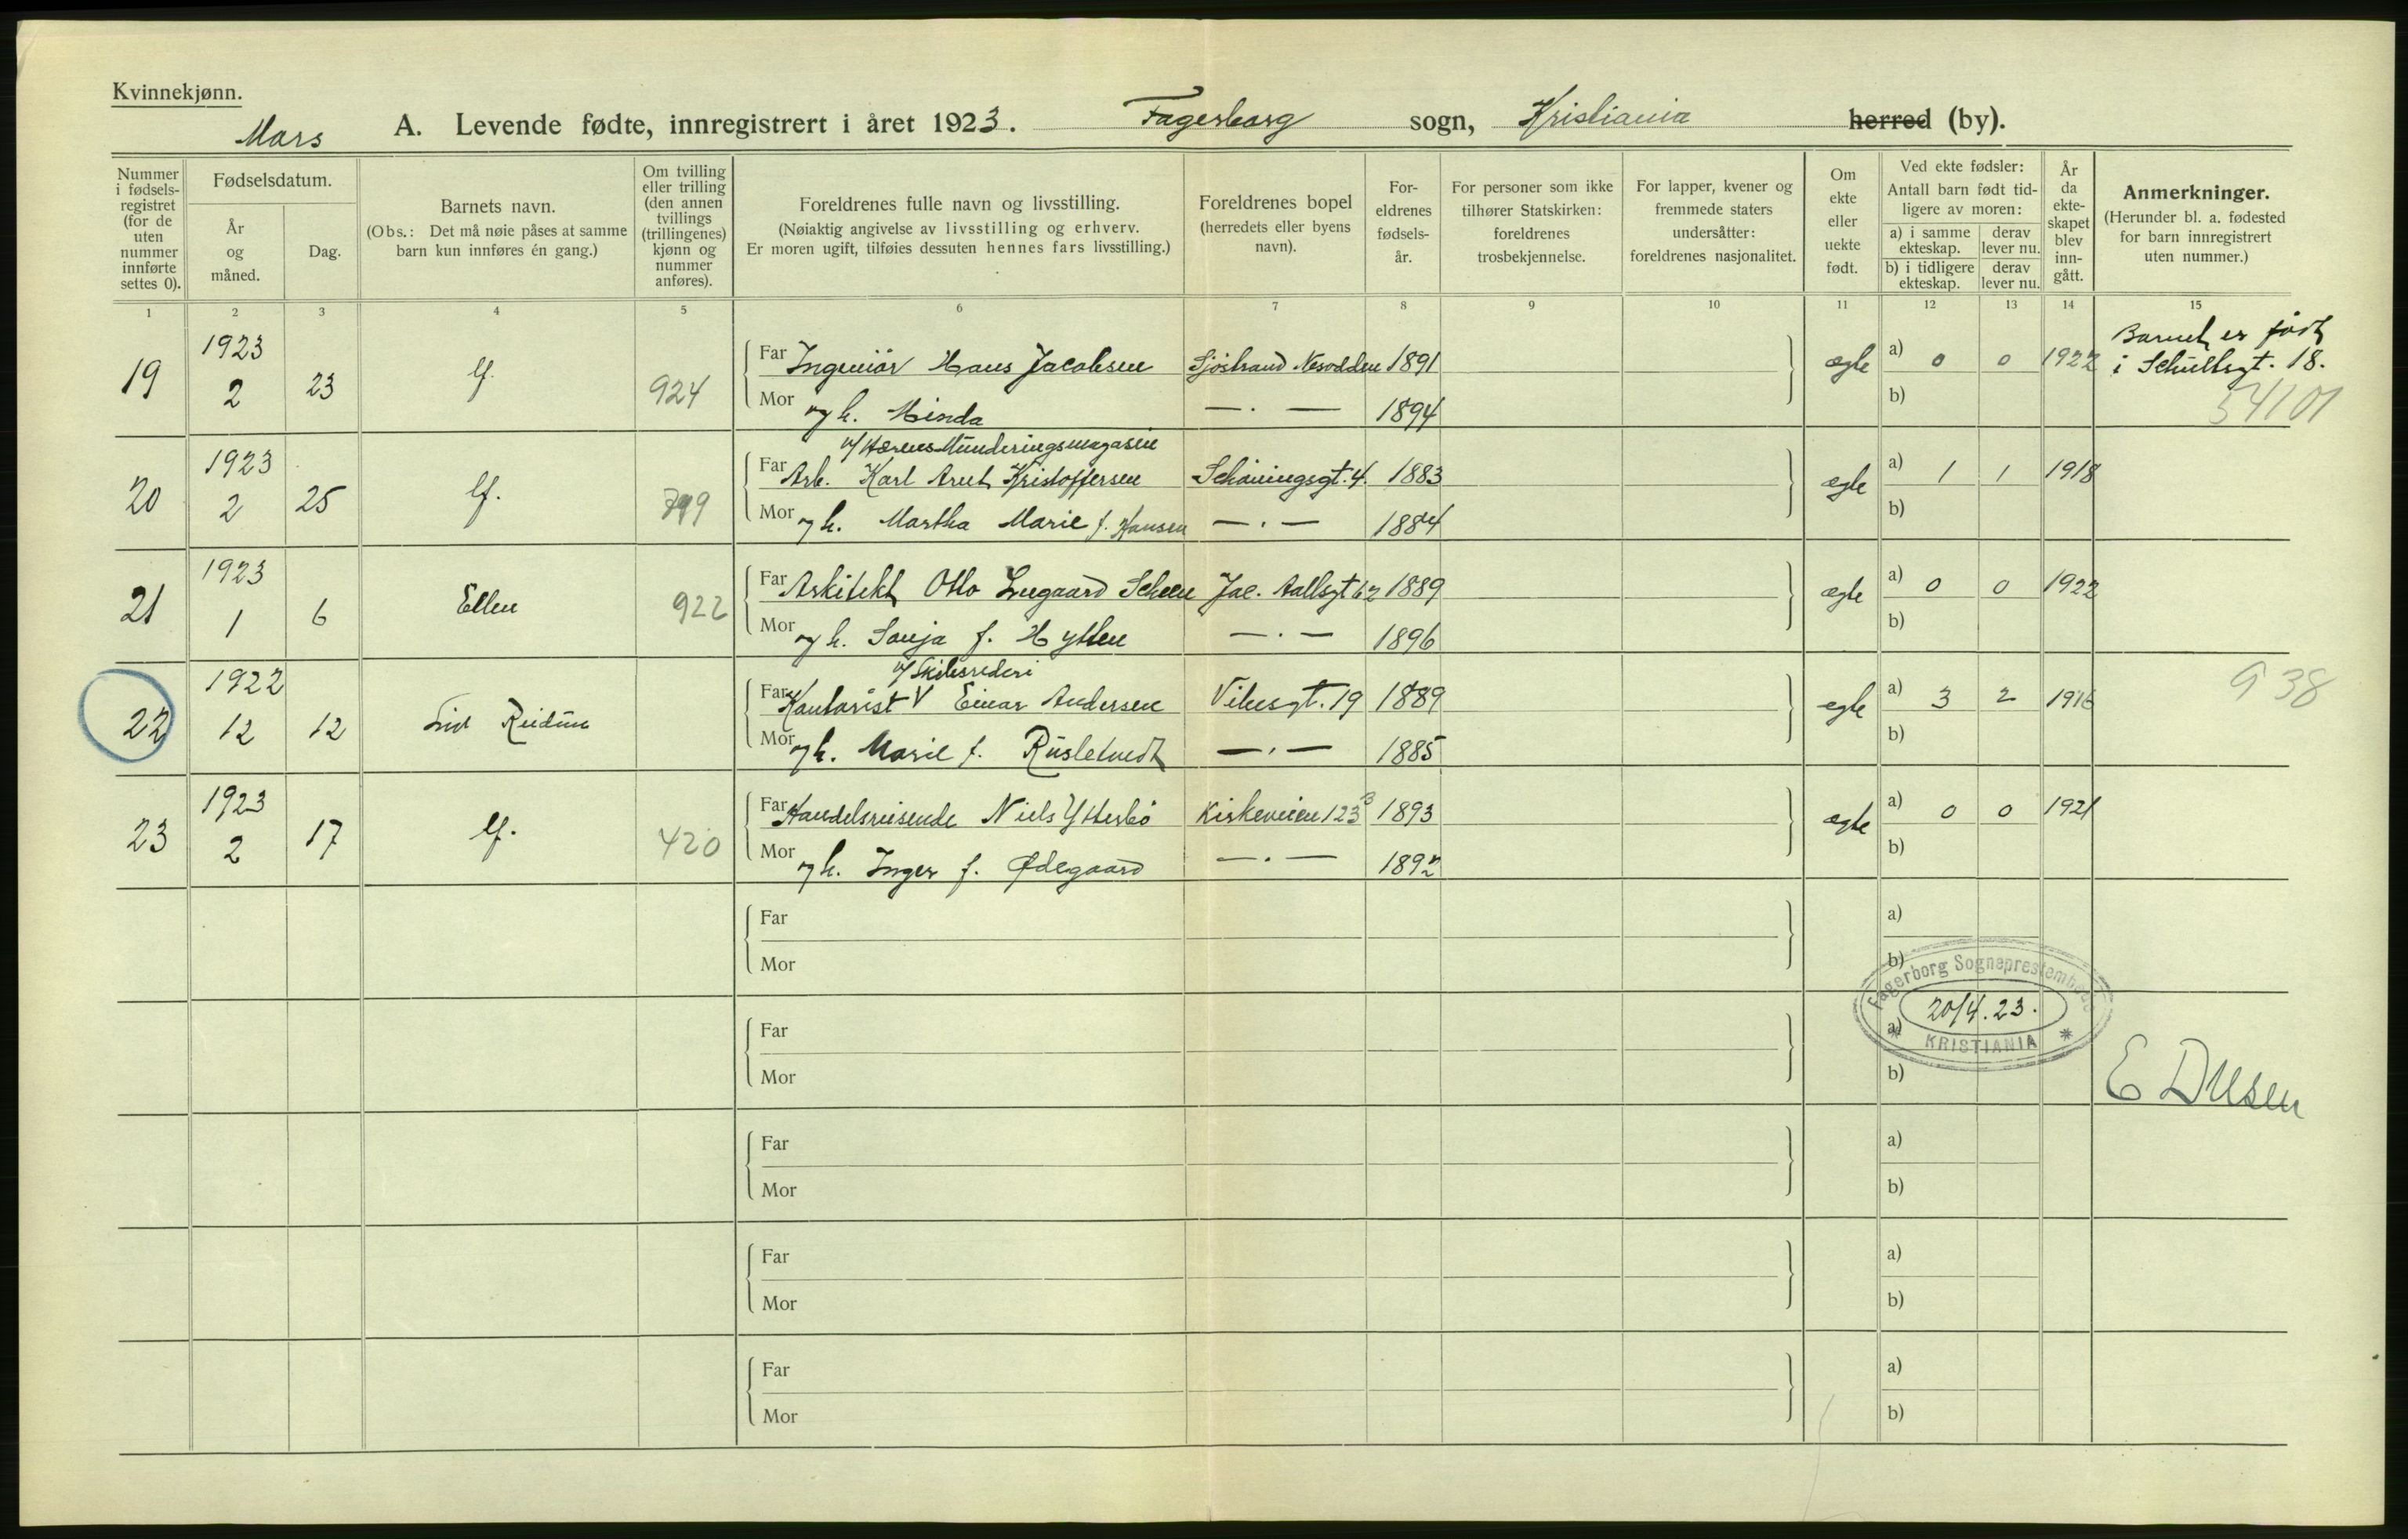 Kvinnekjønn.
Mars A. Levende fødte, innregistrert i året 1923. Fagerborg sogn, Kristiania herred (by).
Nummer i fødsels-registret (for de uten nummer innførte settes 0).
Fødselsdatum.
År og måned.
Dag.
Barnets navn.
(Obs.: Det må nøie påses at samme barn kun innføres én gang.)
Om tvilling eller trilling (den annen tvillings (trillingenes) kjønn og nummer anføres).
Foreldrenes fulle navn og livsstilling.
(Nøiaktig angivelse av livsstilling og erhverv.
Er moren ugift, tilføies dessuten hennes fars livsstilling.)
Foreldrenes bopel
(herredets eller byens navn).
For-eldrenes fødsels-år.
For personer som ikke tilhører Statskirken: foreldrenes trosbekjennelse.
For lapper, kvener og fremmede staters undersåtter: foreldrenes nasjonalitet.
Om ekte eller uekte født.
Ved ekte fødsler:
Antall barn født tid-ligere av moren:
a) i samme ekteskap.
derav lever nu.
b) i tidligere ekteskap.
derav lever nu.
År da ekte-skapet blev inn-gått.
Anmerkninger.
(Herunder bl. a. fødested for barn innregistrert uten nummer.)
1 2 3 4 5 6 7 8 9 10 11 12 13 14 15
19 1923 2 23 924
Far Ingeniör Hans Jacobsen Sjöstrand Nesodden 1891
Mor og h. Minda — . — 1894
ægte a) 0 0 1922 b)
Barnet er född i Schultsgt. 18.
54101
20 1923 2 25 799
v/ Hærens Munderingsmagasin
Far Arb. Karl Arnt Kristoffersen Schöningsgt. 4. 1883
Mor og h. Martha Marie f. Hansen — . — 1884
ægte a) 1 1 1918 b)
21 1923 1 6 Ellen 922
Far Arkitekt Otto Scheen Jac. Aallsgt 62 1889
Mor og h. Sonja f. Hytten — . — 1896
ægte a) 0 0 1922 b)
22 1922 12 12 Liv Reidun
v/ Skibsrederi
Far Kontorist V Einar Andersen Vibesgt. 19 1889
Mor og h. Marie f. Rusletvedt — . — 1885
egte a) 3 2 1916 b)
938
23 1923 2 17 420
Far Handelsreisende Niels Ytterbö Kirkeveien 123 B 1893
Mor og h. Inger f. Ødegaard — . — 1892
ægte a) 0 0 1921 b)
Far a)
Mor b)
Fagerborg Sogneprestembede
20/4.23.
KRISTIANIA
Far a)
Mor b)
Far a)
Mor b)
Far a)
Mor b)
Far a)
Mor b)